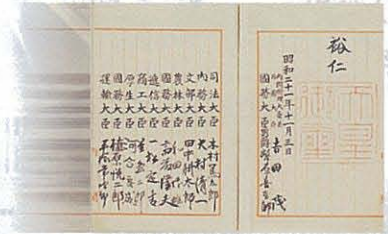 裕仁
天皇
御璽
昭和二十一年十一月三日
吉田茂
國務大臣 男爵 幣原喜重郎
司法大臣 木村篤太郎
内務大臣 大村清一
文部大臣 田中耕太郎
農林大臣 和田博雄
國務大臣 斎藤隆夫
遞信大臣 一松定吉
商工大臣 星島二郎
厚生大臣 河合良成
國務大臣 植原悦二郎
運輸大臣 平塚常次郎